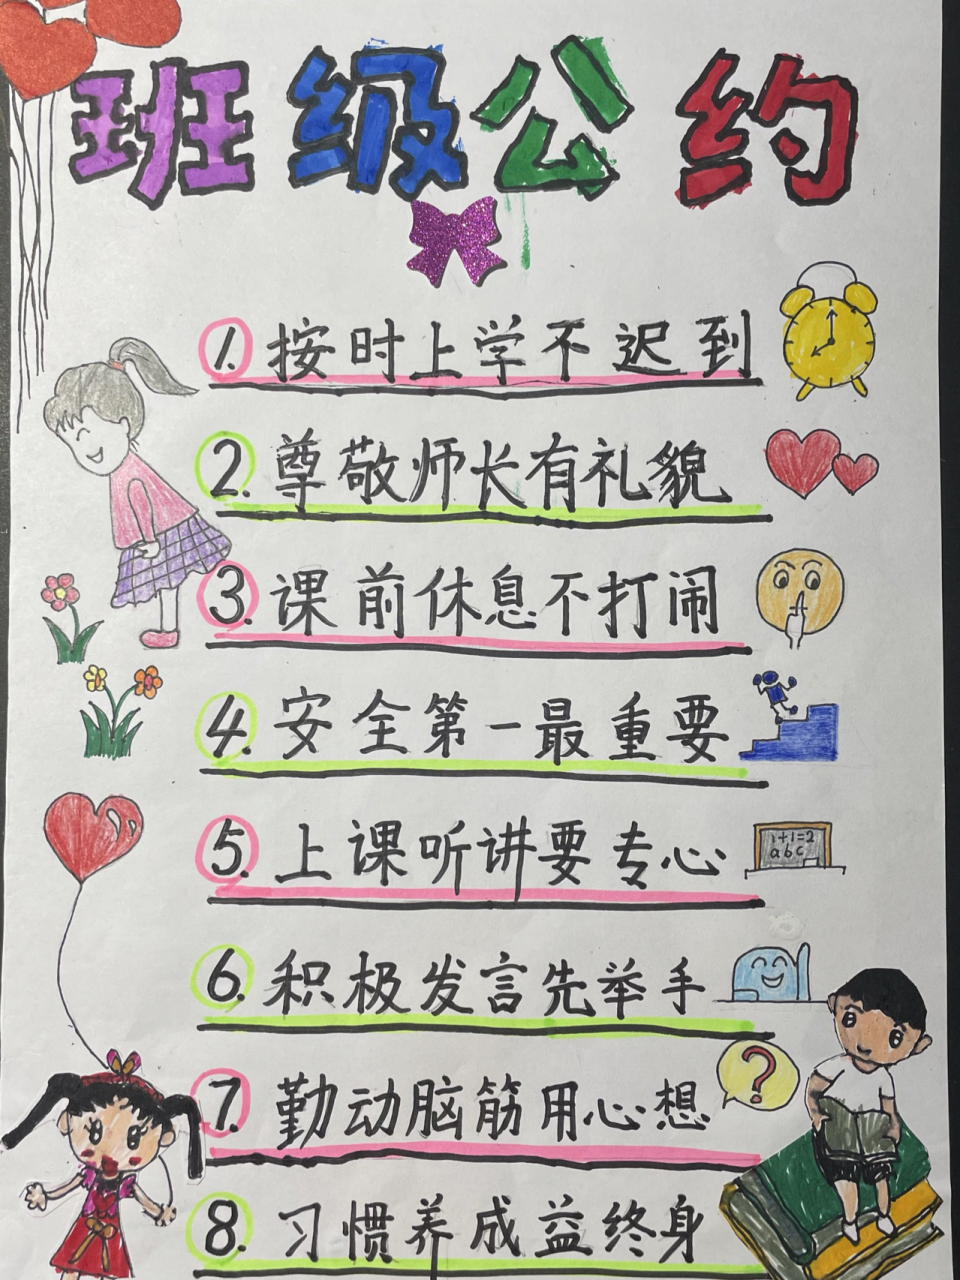 班级公约
1. 按时上学不迟到
2. 尊敬师长有礼貌
3. 课前休息不打闹
4. 安全第一最重要
5. 上课听讲要专心
1+1=2
abc
6. 积极发言先举手
?
7. 勤动脑筋用心想
8. 习惯养成益终身